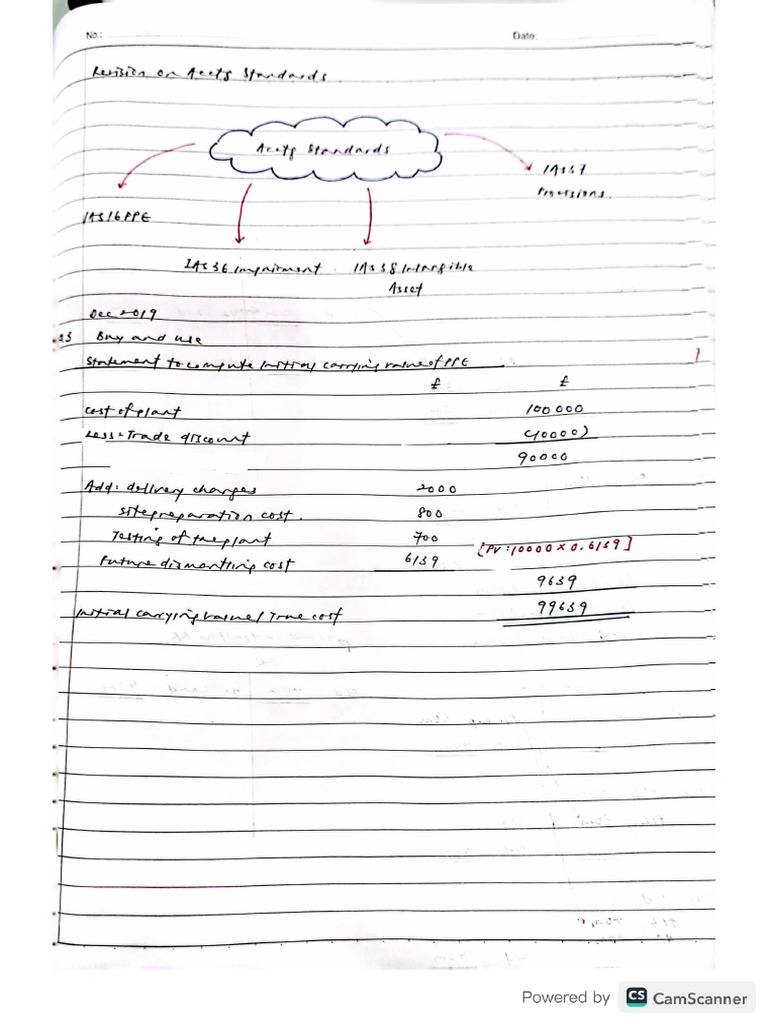 No.: Date:
Revision on Acctg Standards.
Acctg Standards
IAS37
Provisions.
IAS16 PPE
IAS 36 Impairment IAS 38 Intangible
Asset
Dec 2019
Buy and use
Statement to compute initial carrying value of PPE
£ £
Cost of plant 100 000
Less: Trade discount (10000)
90000
Add: delivery charges 2000
Site preparation cost. 800
Testing of the plant 700
Future dismantling cost 6139 [PV: 10000 x 0.6139]
9639
Initial carrying value / True cost 99639
Powered by CS CamScanner